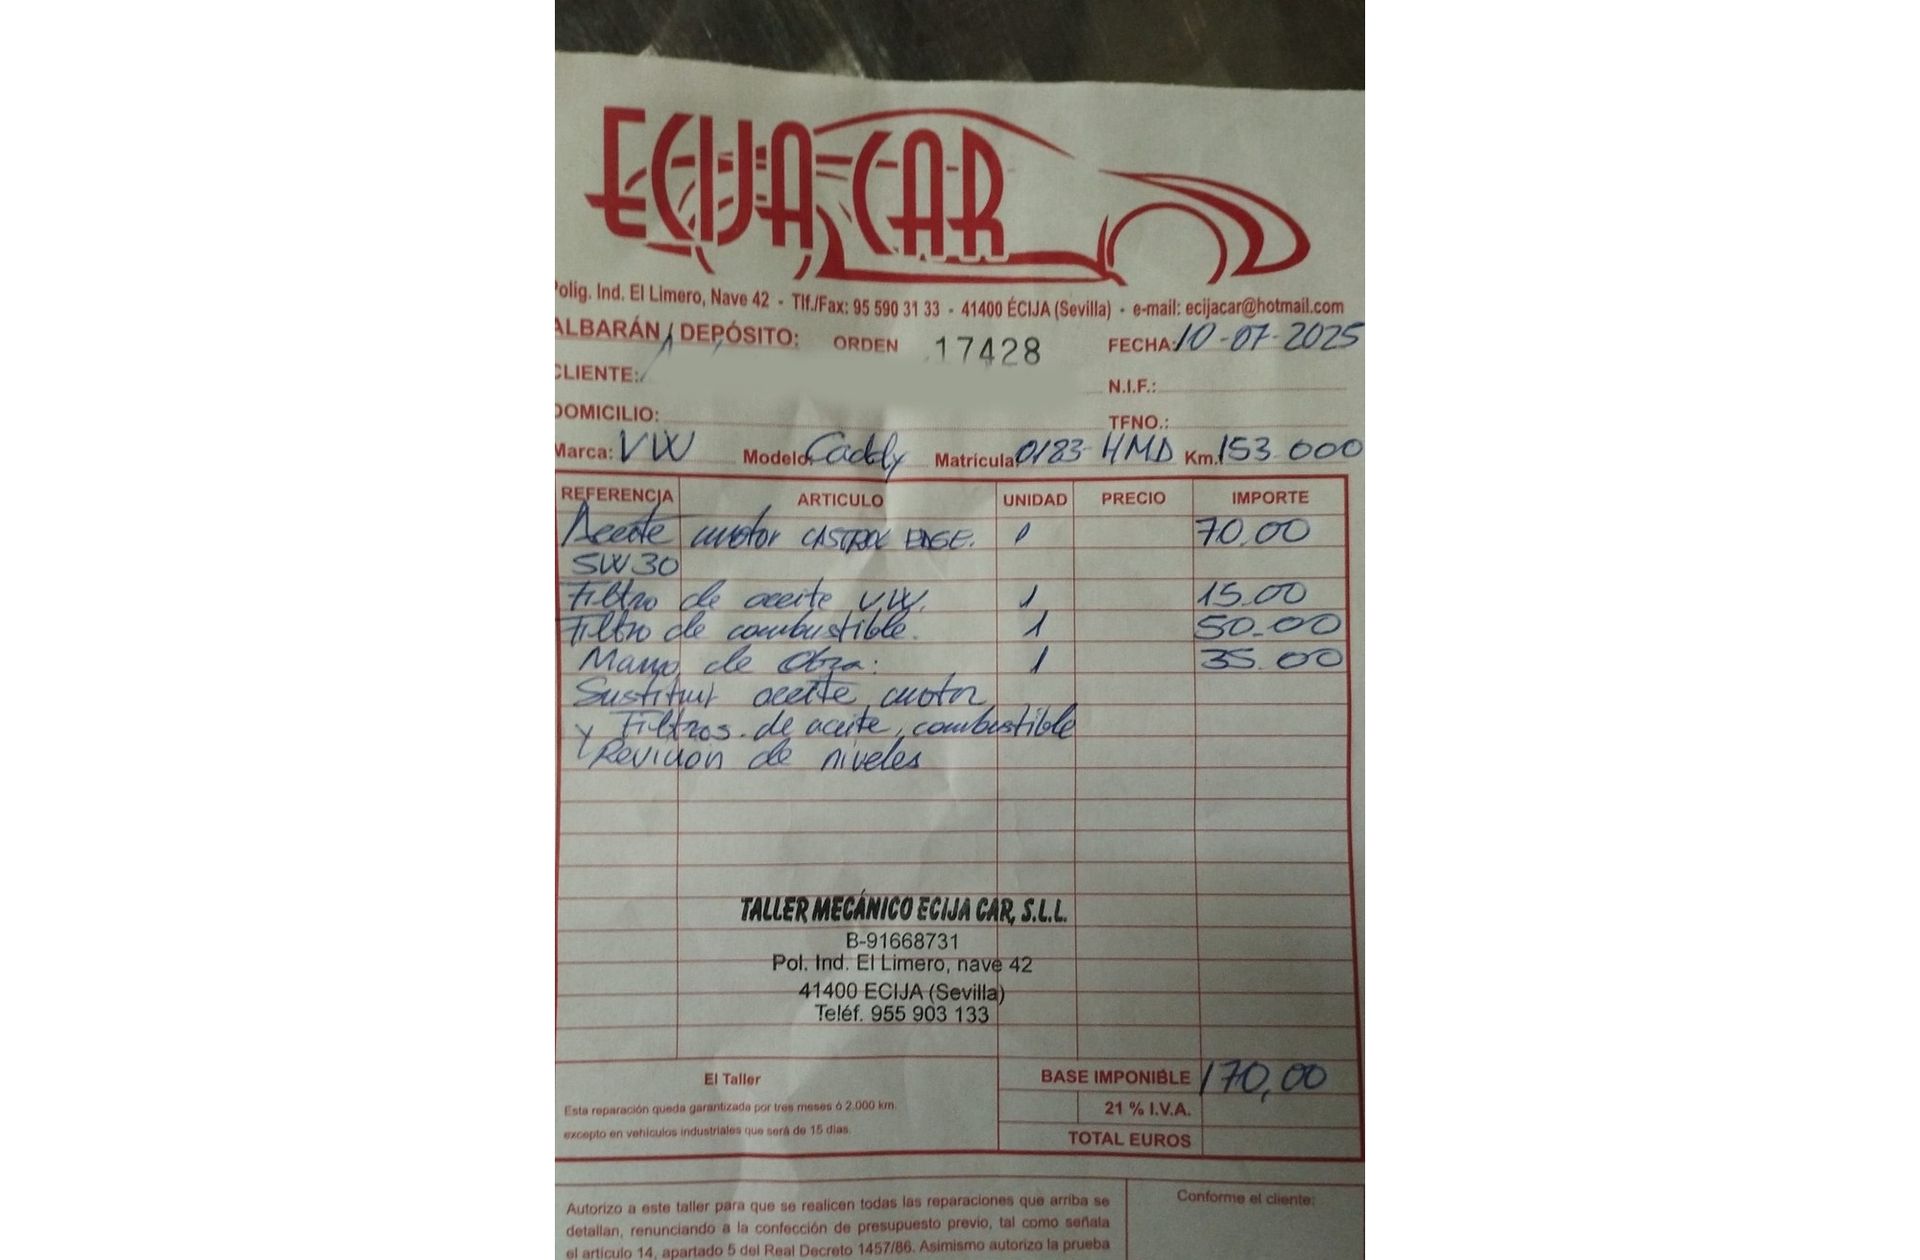 ECIJA CAR
Polig. Ind. El Limero, Nave 42 - Tlf./Fax: 95 590 31 33 - 41400 ÉCIJA (Sevilla) - e-mail: ecijacar@hotmail.com
ALBARÁN / DEPÓSITO: ORDEN 17428 FECHA: 10-07-2025
CLIENTE: N.I.F.:
DOMICILIO: TFNO.:
Marca: VW Modelo: Caddy Matrícula: 0183 HMD Km. 153.000
REFERENCIA ARTICULO UNIDAD PRECIO IMPORTE
Aceite motor CASTROL EDGE. 70,00
5W30
Filtro de aceite V.W. 1 15.00
Filtro de combustible. 1 50.00
Mano de Obra: 1 35.00
Sustituir aceite motor
y Filtros de aceite, combustible
y Revicion de niveles
TALLER MECÁNICO ECIJA CAR, S.L.L.
B-91668731
Pol. Ind. El Limero, nave 42
41400 ECIJA (Sevilla)
Teléf. 955 903 133
El Taller BASE IMPONIBLE 170,00
Esta reparación queda garantizada por tres meses ó 2.000 km. 21 % I.V.A.
excepto en vehículos industriales que será de 15 días. TOTAL EUROS
Autorizo a este taller para que se realicen todas las reparaciones que arriba se Conforme el cliente:
detallan, renunciando a la confección de presupuesto previo, tal como señala
el artículo 14, apartado 5 del Real Decreto 1457/86. Asimismo autorizo la prueba